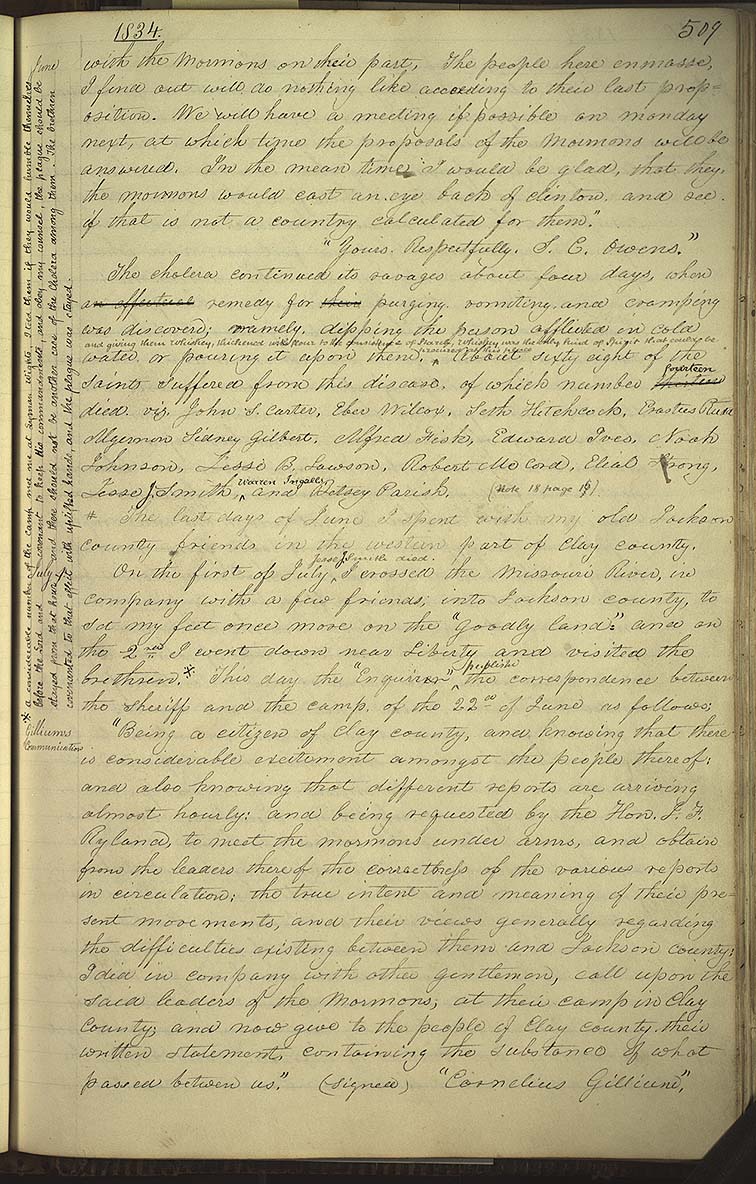 1834.
509
June
with the Mormons on their part, The people here enmasse,
I find out will do nothing like acceeding to their last prop=
osition. We will have a meeting if possible on monday
next, at which time the proposals of the Mormons will be
answered. In the mean time I would be glad, that they,
the mormons would cast an eye back of clinton, and see
if that is not a country calculated for them."
"Yours. Respectfully. S. C. Owens."
The cholera continued its ravages about four days, when
an effectual remedy for their purging, vomiting, and cramping
was discoverd; namely, dipping the person afflicted in cold
and giving them whiskey, thickened with flour to the consistence of starch, whiskey was the only kind of spirit that could be
procured at this place
water, or pouring it upon them, ^ About sixty eight of the
Saints suffered from this disease, of which number thirteen fourteen
died. viz. John S. Carter, Eber Wilcox, Seth Hitchcock, Erastus Rudd
Algernon Sidney Gilbert, Alfred Fisk, Edward Ives, Noah
Johnson, Jesse B. Lawson, Robert McCord, Elial Strong,
Warren Ingalls
Jesse J. Smith, ^ and Betsey Parish. (Note 18 page 15)
* The last days of June I spent with my old Jackson
county friends in the western part of Clay county.
July
Jesse J Smith died.
On the first of July ^ I crossed the Missouri River, in
company with a few friends, into Jackson county, to
set my feet once more on the "goodly land:" and on
the 2nd I went down near Liberty and visited the
publishd
brethren.* This day the "Enquirer" ^ the correspondence between
the sheriff and the camp, of the 22nd of June as follows;
Gilliums
Communication
"Being a citizen of Clay county, and knowing that there
is considerable excitement amongst the people thereof;
and also knowing that different reports are arriving
almost hourly: and being requested by the Hon. J. F.
Ryland, to meet the mormons under arms, and obtain
from the leaders thereof the correctness of the various reports
in circulation; the true intent and meaning of their pre=
sent movements, and their views generally regarding
the difficulties existing between them and Jackson county;
I did in company with other gentlemen, call upon the
said leaders of the Mormons, at their camp in Clay
County; and now give to the people of Clay county their
written statement, containing the substance of what
passed between us." (signed) "Cornelius Gillium",
* a considerable number of the camp met me at Lyman Wights, I told them if they would humble themselves
before the Lord and covenant to keep his commandments, and obey my counsel, the plague should be
stayed from that hour, and there should not be another case of the Cholera among them. The brethren
covenanted to that effect with uplifted hands, and the plague was stayed.